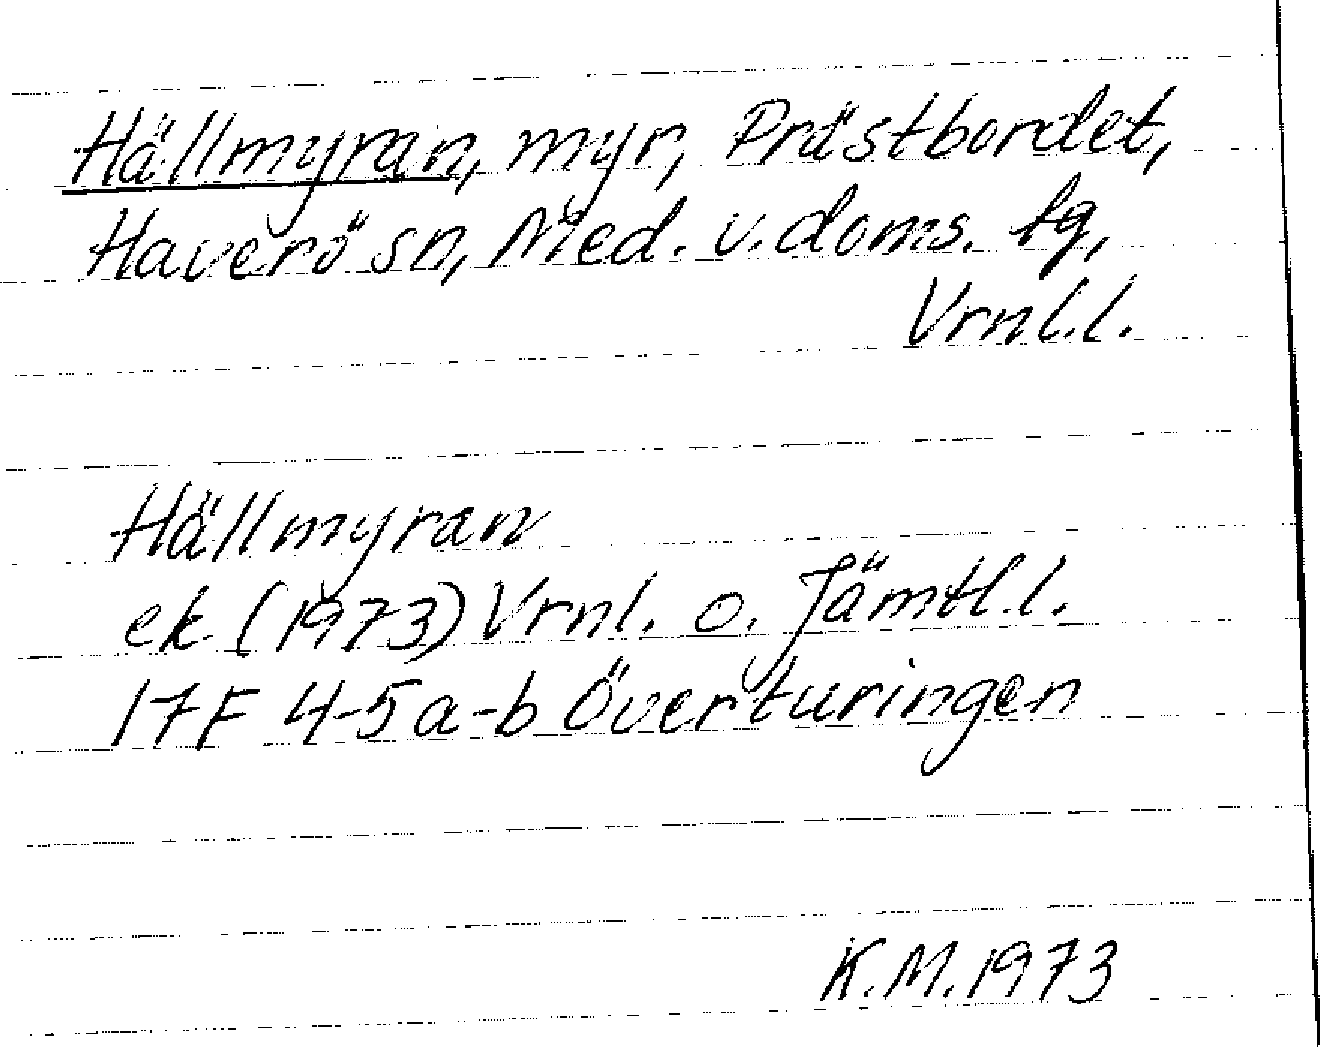 Hällmyran, myr, Prästbordet,
Haverö sn, Med. v. doms. tg,
Vrnl.l.
Hällmyran
ek (1973) Vrnl. o. Jämtl.l.
17F 4-5a-b Överturingen
K.M.1973